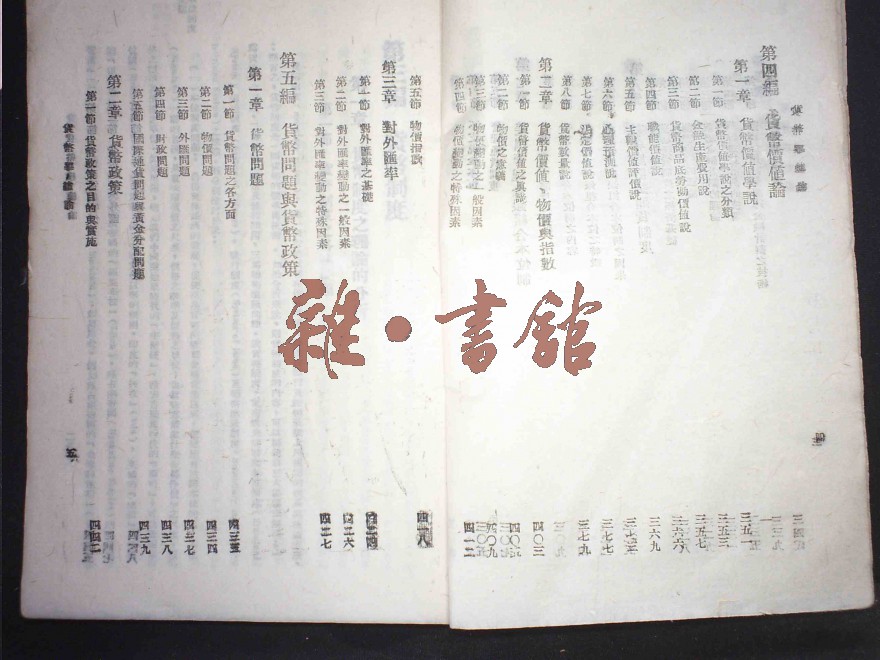 第四編　貨幣價值論
第一章　貨幣價值學說
第一節　貨幣價值學說之分類　三五一
第二節　金屬生產費用說　三五三
第三節　貨幣商品底勞動價值說　三五七
第四節　職能價值說　三六六
第五節　主觀價值評價說　三六九
第六節　心理
第七節　法定價值說　三七七
第八節　貨幣數量說　三七九
第二章　貨幣價值、物價與指數
第一節　貨幣價值之奧說　四〇三
第二節　物價之基礎
第三節　物價變動之一般因素　四〇九
第四節　物價變動之特殊因素　四一二
第五節　物價指數
第三章　對外匯率
第一節　對外匯率之基礎
第二節　對外匯率變動之一般因素　四二六
第三節　對外匯率變動之特殊因素　四二七
第五編　貨幣問題與貨幣政策
第一章　貨幣問題
第一節　貨幣問題之各方面　四三三
第二節　物價問題　四三四
第三節　外匯問題　四三七
第四節　財政問題　四三八
第五節　國際通貨問題與黃金分配問題　四三九
第二章　貨幣政策
第一節　貨幣政策之目的與實施　四四二
雜・書館